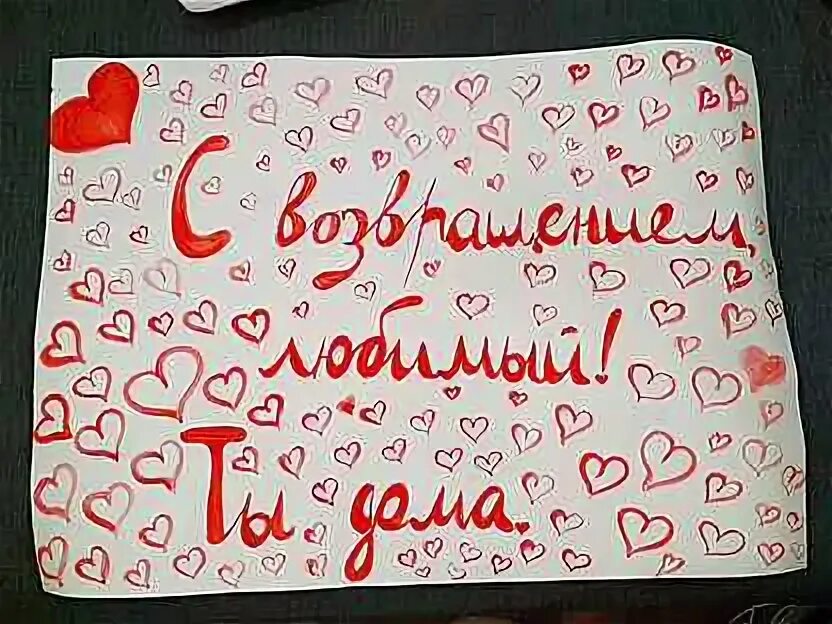 С возвращением,
любимый!
Ты дома.